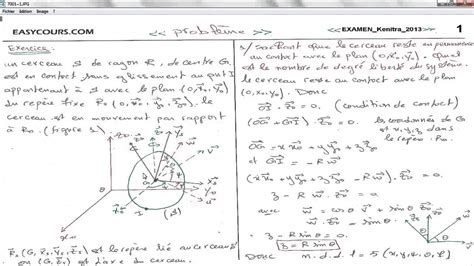 7001-1.JPG
Fichier Edition Image ?
EASYCOURS.COM
<< problème >>
<<EXAMEN_Kenitra_2013>>
1
Exercice :
un cerceau S de rayon R, de centre G,
est en contact sans glissement au point I
appartenant à S avec le plan (0, x₀, y₀)
du repère fixe R₀ (0, x₀, y₀, z₀), le
cerceau est en mouvement par rapport
à R₀. (figure 1)
est le repère lié au cerceau
est l'axe du cerceau.
Sachant que le cerceau reste en permanence
au contact avec le plan (0, x₀, y₀). Quel
est le nombre de degré liberté du système.
le cerceau reste au contact avec le plan
(0, x₀, y₀). Donc
OI . z₀ = 0 (condition de contact)
(OG + GI) . z₀ = 0 les coordonnée de G
est x, y, z dans
le repère R₀.
OG = x x₀ + y y₀ + z z₀
et GI = - R w
(x x₀ + y y₀ + z z₀ - R w) . z₀ = 0
z - R w . z₀ = 0
avec w = cos θ v + sin θ z₀
z - R sin θ = 0
z = R sin θ
Donc n.d.d.l = 5 (x, y, ψ, θ, φ)